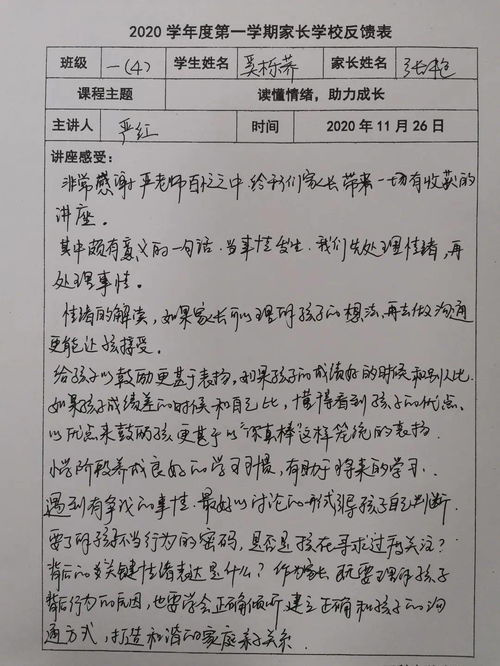 2020 学年度第一学期家长学校反馈表
班级 一(4) 学生姓名 奚栎荞 家长姓名
课程主题 读懂情绪，助力成长
主讲人 严红 时间 2020 年 11 月 26 日
讲座感受：
非常感谢严老师百忙之中.给我们家长带来一切有收获的
讲座。
其中颇有意义的一句话.当事情发生.我们先处理情绪,再
处理事情。
情绪的解读，如果家长可以理解孩子的想法,再去做沟通
更能让孩接受。
给孩子以鼓励更甚于表扬，如果孩子的成绩好的时候和别人比
如果孩子成绩差的时候和自己比，懂得看到孩子的优点、
以优点来鼓励孩更甚于以“你真棒”这样笼统的表扬.
小学阶段养成良好的学习习惯，有助于将来的学习.
遇到有争议的事情.最好以讨论的形式引导孩子自己判断.
要了解孩不当行为的密码，是否是孩在寻求过两关注？
背后的关键性情表达是什么？作为家长 既要理解孩子
背后行为的原因，也要学会正确倾听.建立正确和孩子的沟
通方式，打造和谐的家庭亲子关系.